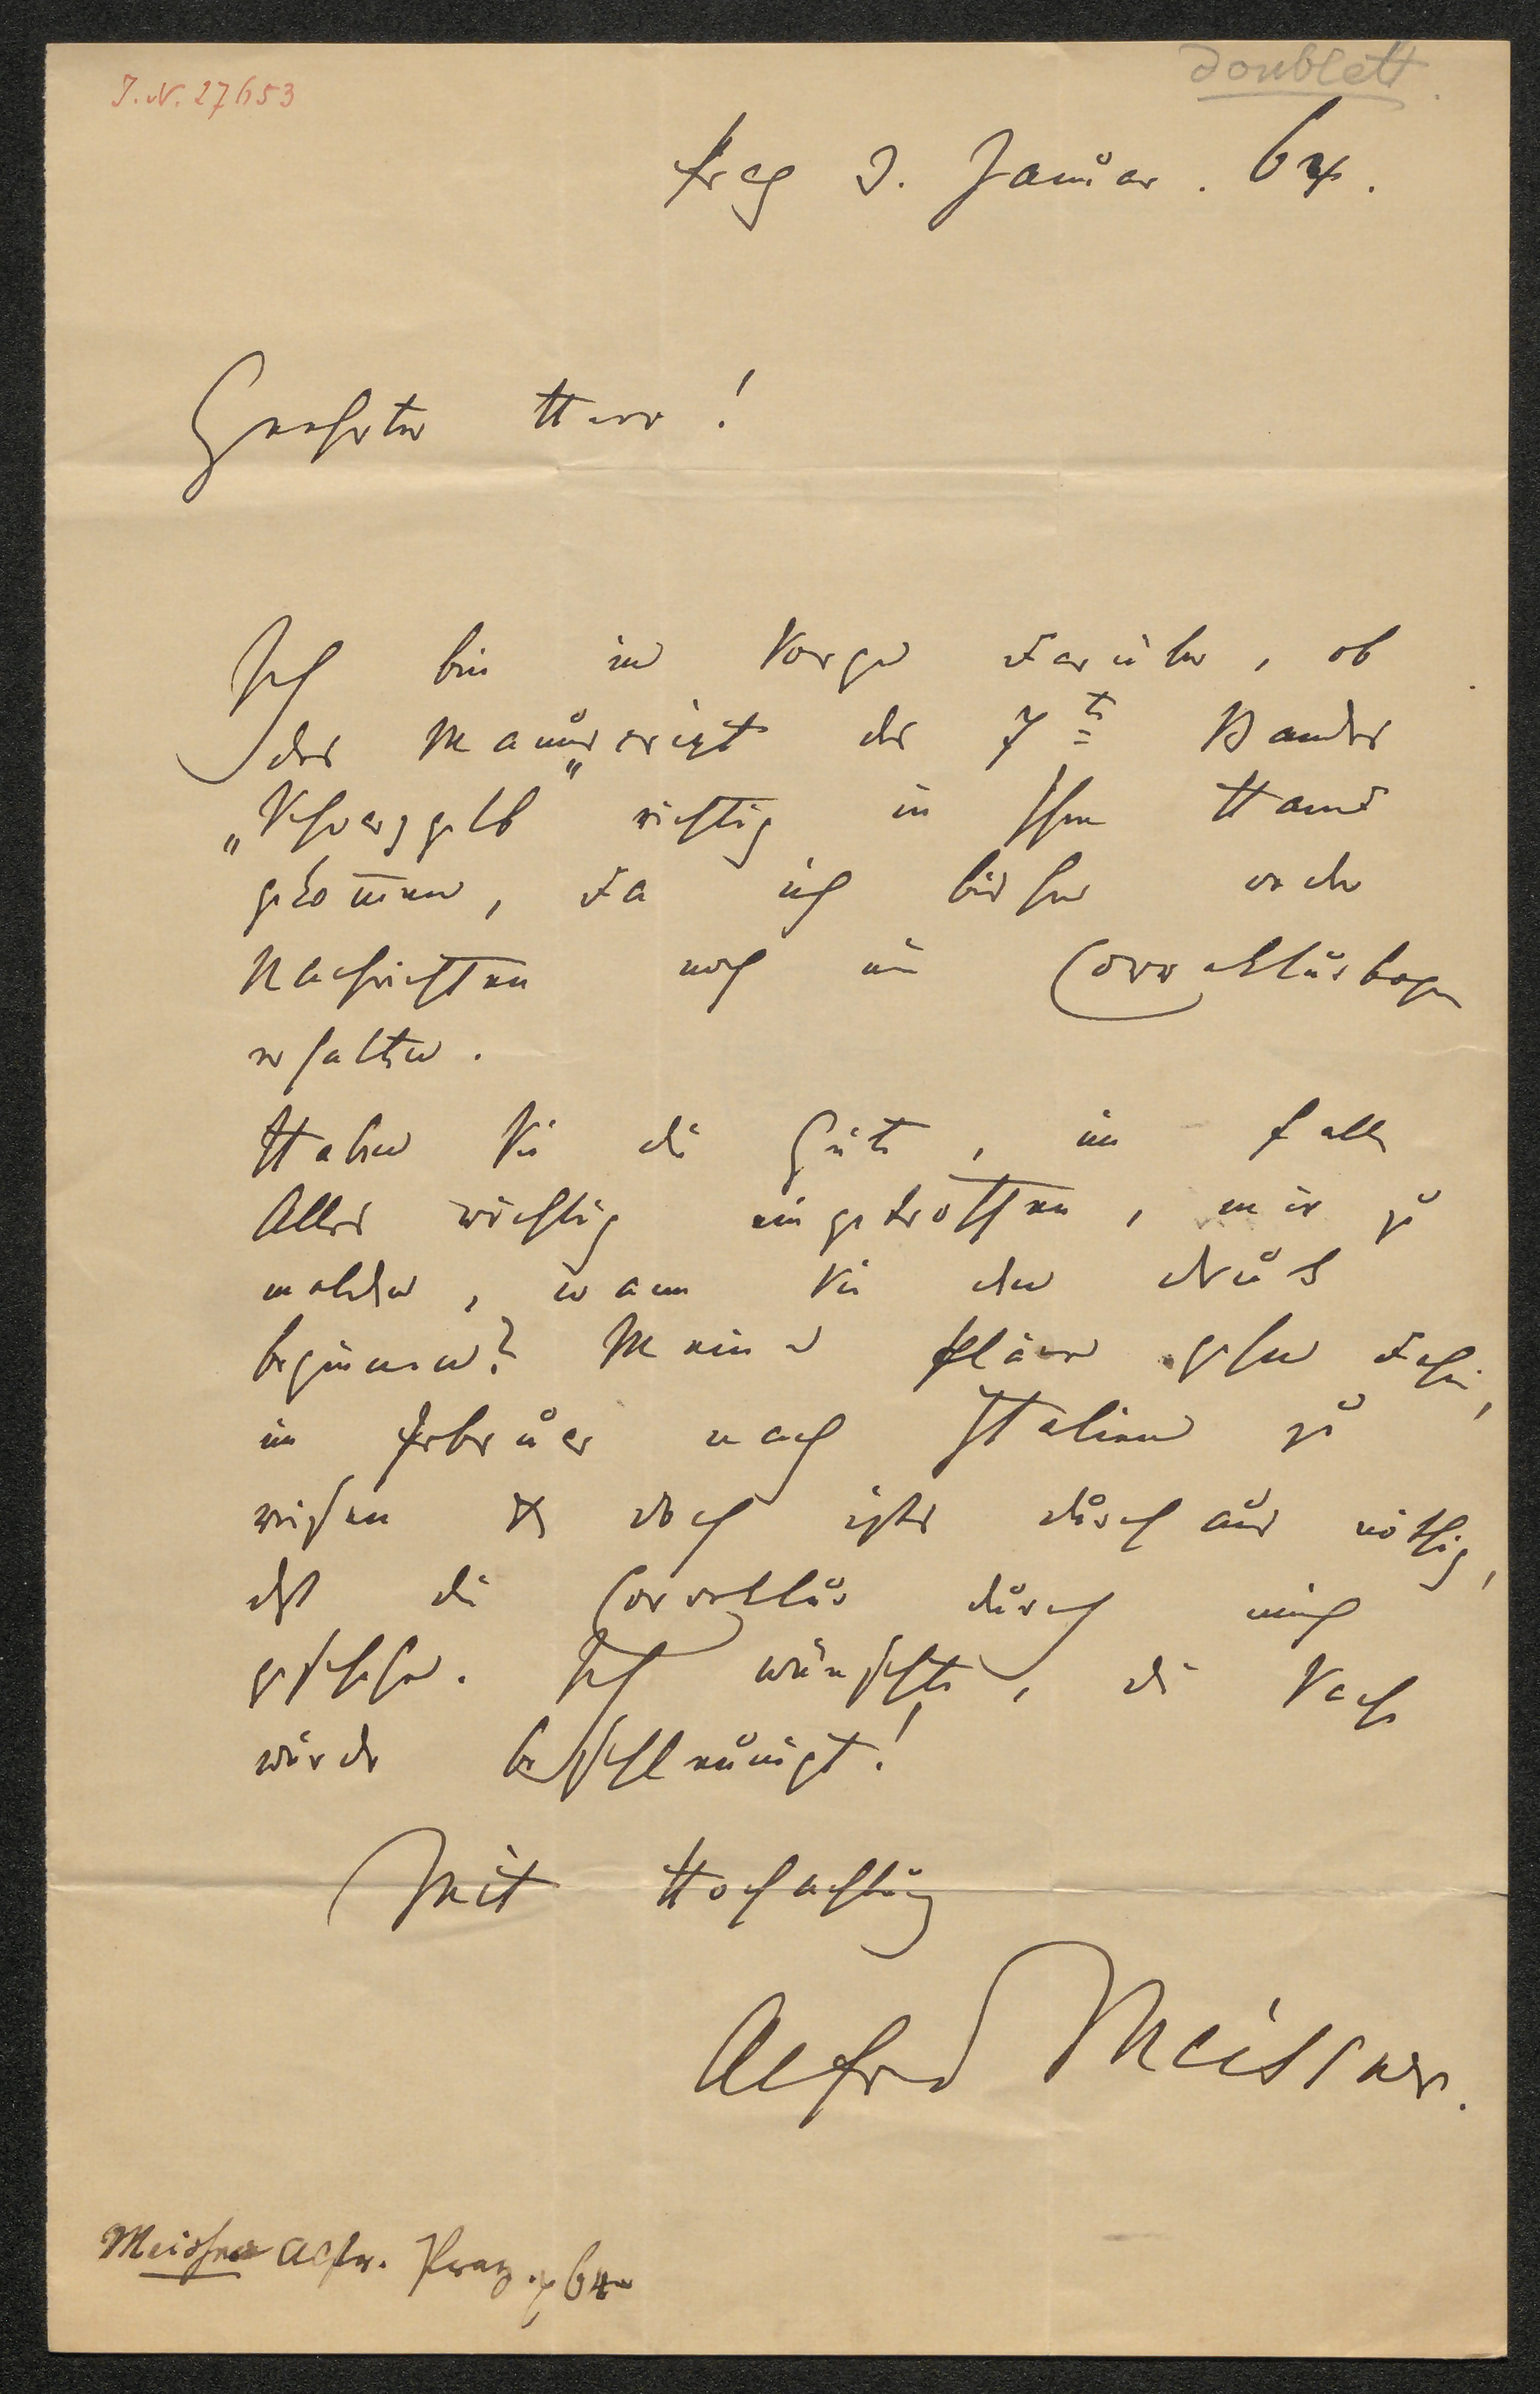 I.N. 27653
Doublett.
Prag 3. Januar. 64.
Geehrter Herr!
Ich bin in Sorge darüber, ob
das Manuscript des 7t Bandes
„Schwarzgelb" richtig in Ihre Hand
gekommen, da ich bisher weder
Nachrichten noch ein Correkturbogen
erhalten.
Haben Sie die Güte, im Falle
Alles richtig eingetroffen, mir zu
melden, wann Sie den Druck
beginnen? Meine Pläne gehen dahin,
im Februar nach Italien zu
reisen & doch ists durchaus nöthig,
dß die Correktur durch mich
geschehe. Ich wünschte, die Sache
würde beschleunigt!
Mit Hochachtung
Alfred Meissner.
Meissner Alfr. Prag 64